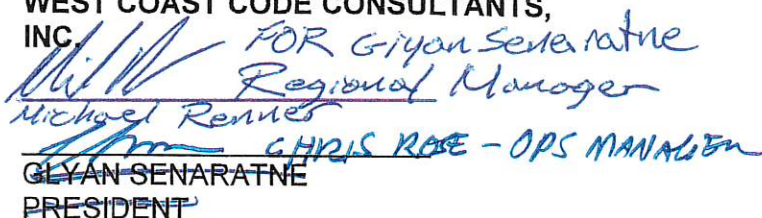 WEST COAST CODE CONSULTANTS,
INC. FOR Giyan Senaratne
Regional Manager
Michael Renner
CHRIS ROSE - OPS MANAGER
GLYAN SENARATNE
PRESIDENT